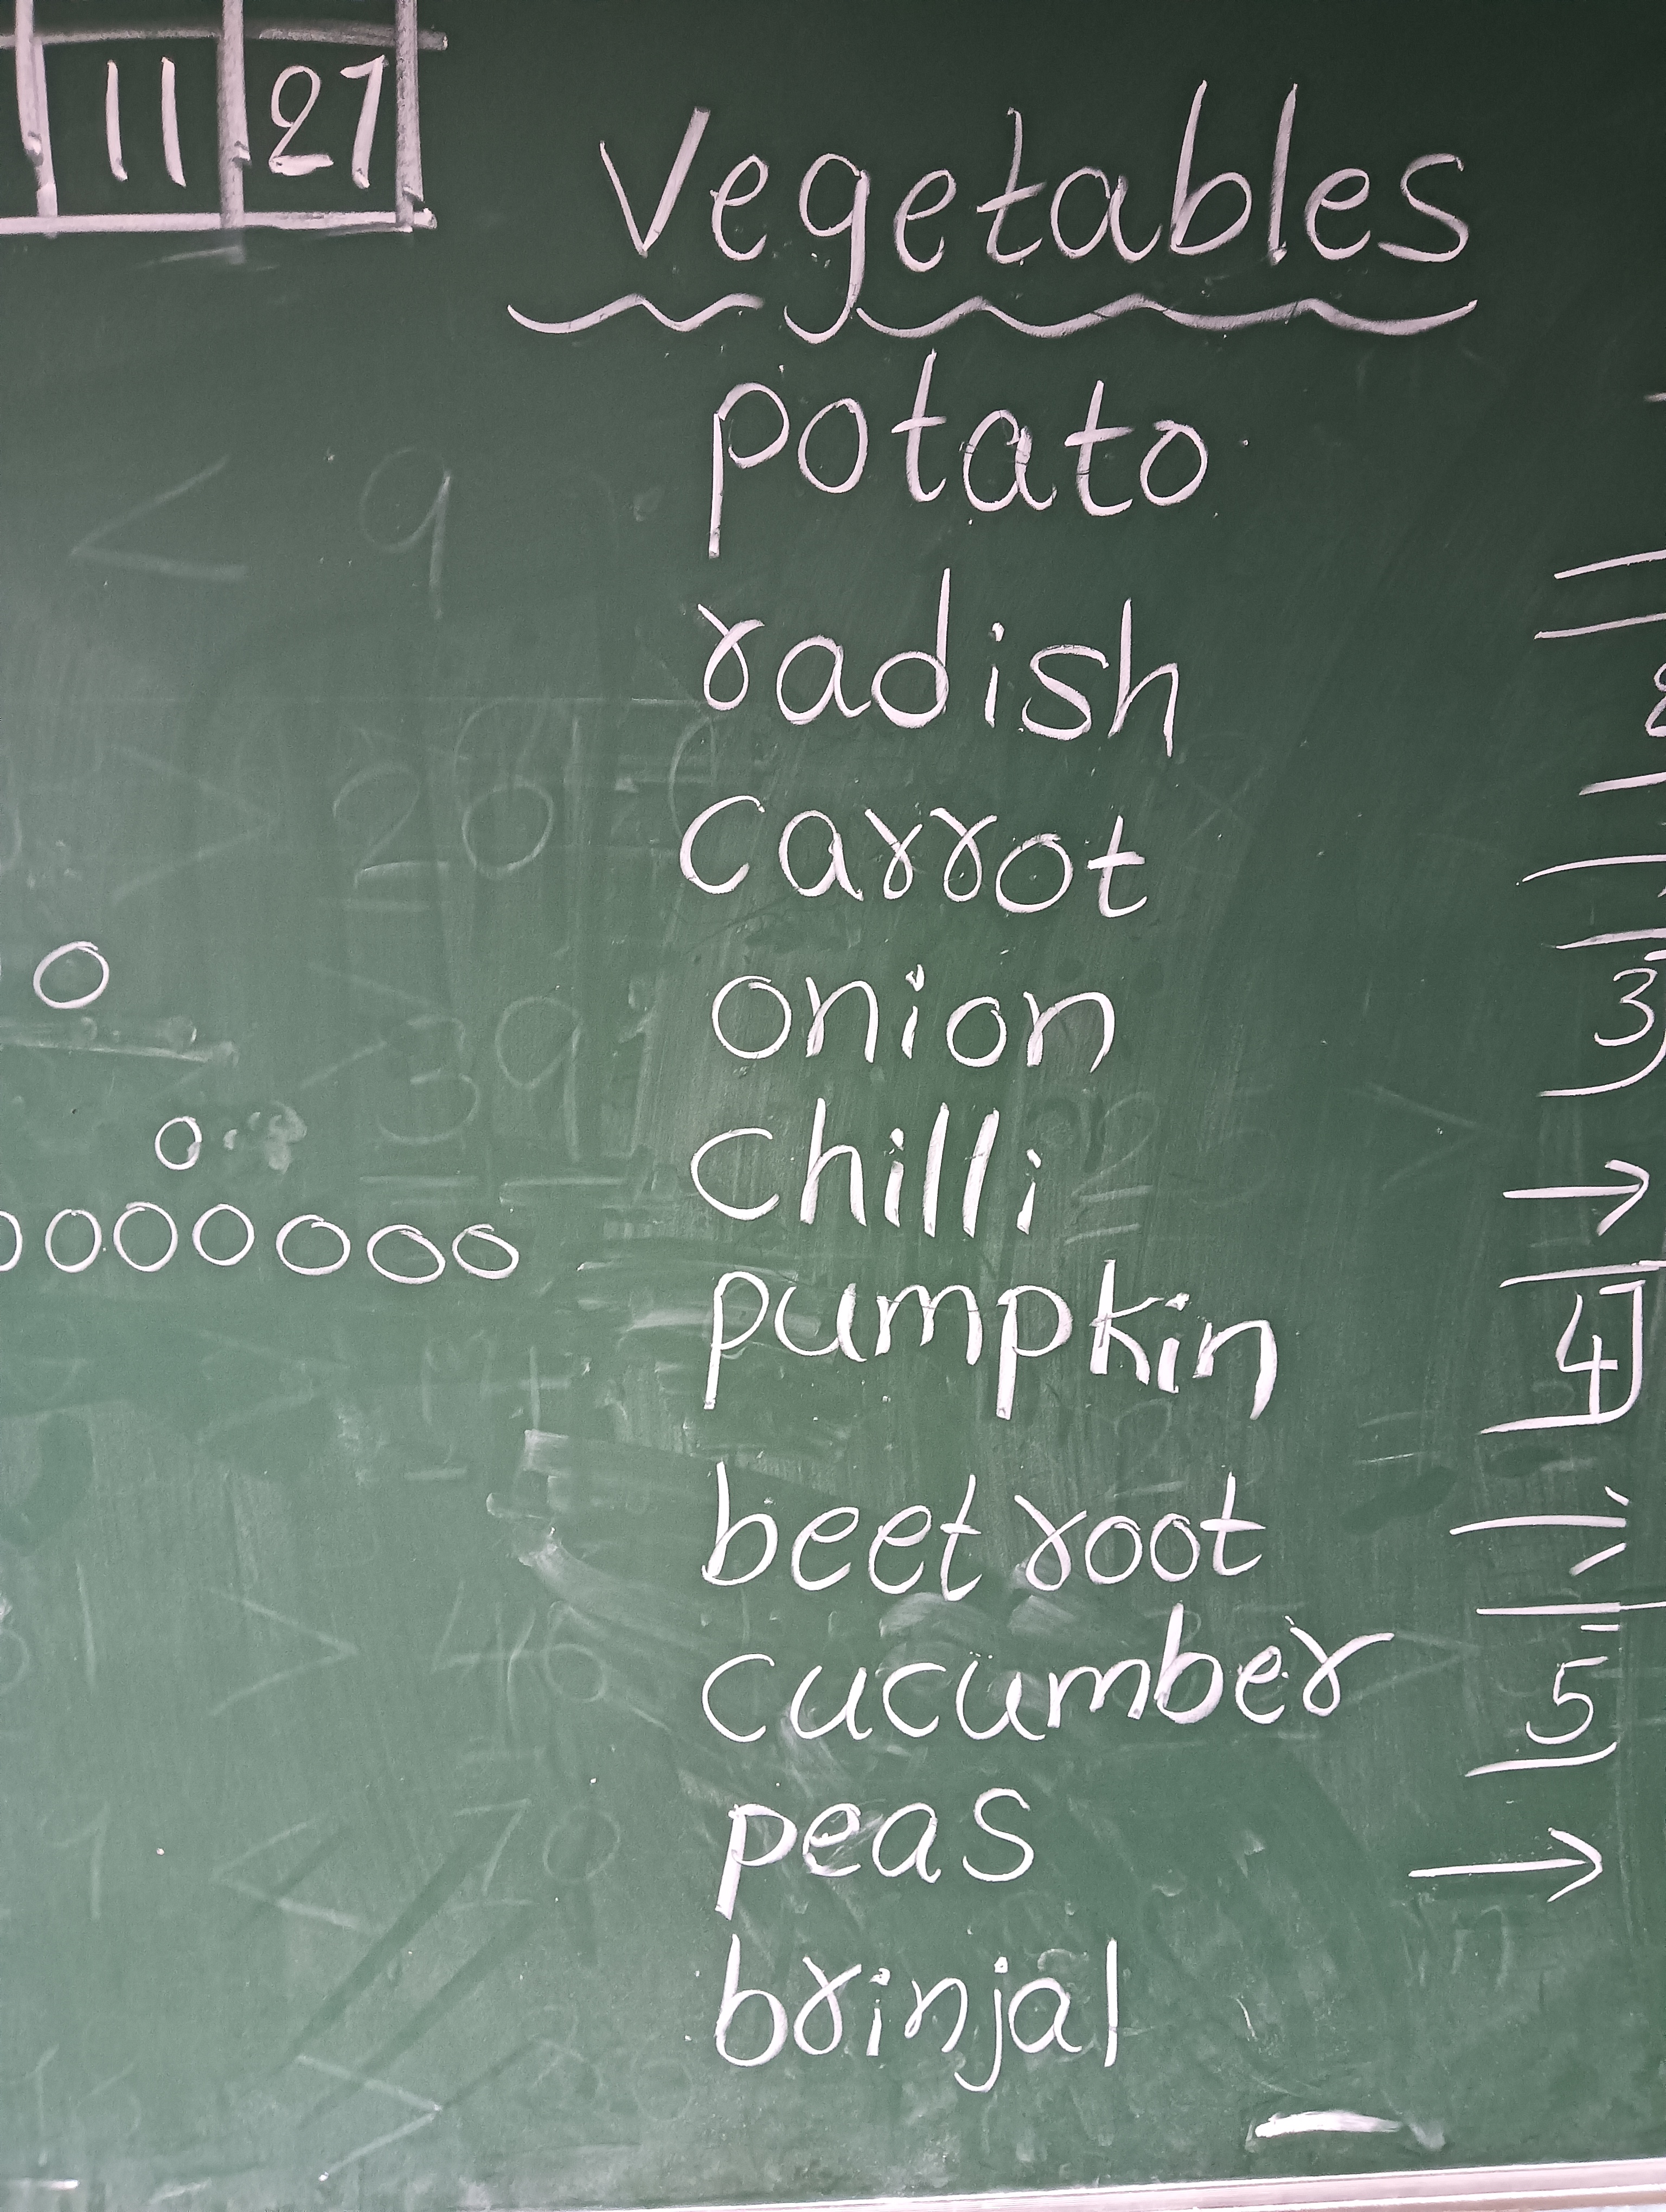 11 27
Vegetables
potato
radish
carrot
onion
chilli
pumpkin
beet root
cucumber
peas
brinjal
< 9
> 20
0
> 39
0
0000000
3
→
4
5
→